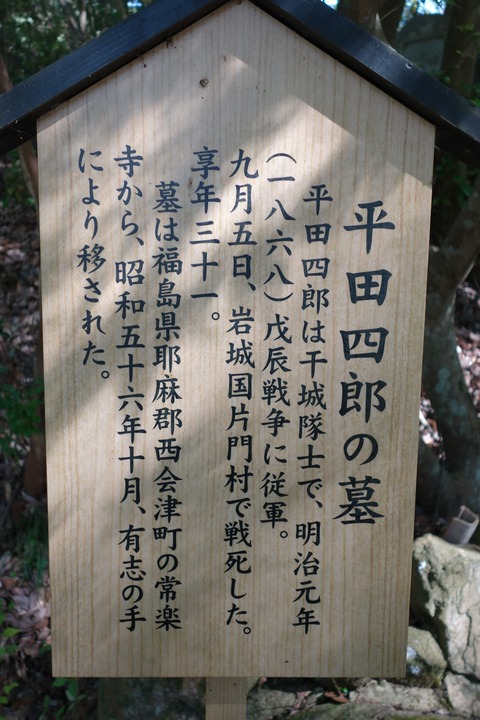 平田四郎の墓
平田四郎は干城隊士で、明治元年
(一八六八)戊辰戦争に従軍。
九月五日、岩城国片門村で戦死した。
享年三十一。
墓は福島県耶麻郡西会津町の常楽
寺から、昭和五十六年十月、有志の手
により移された。